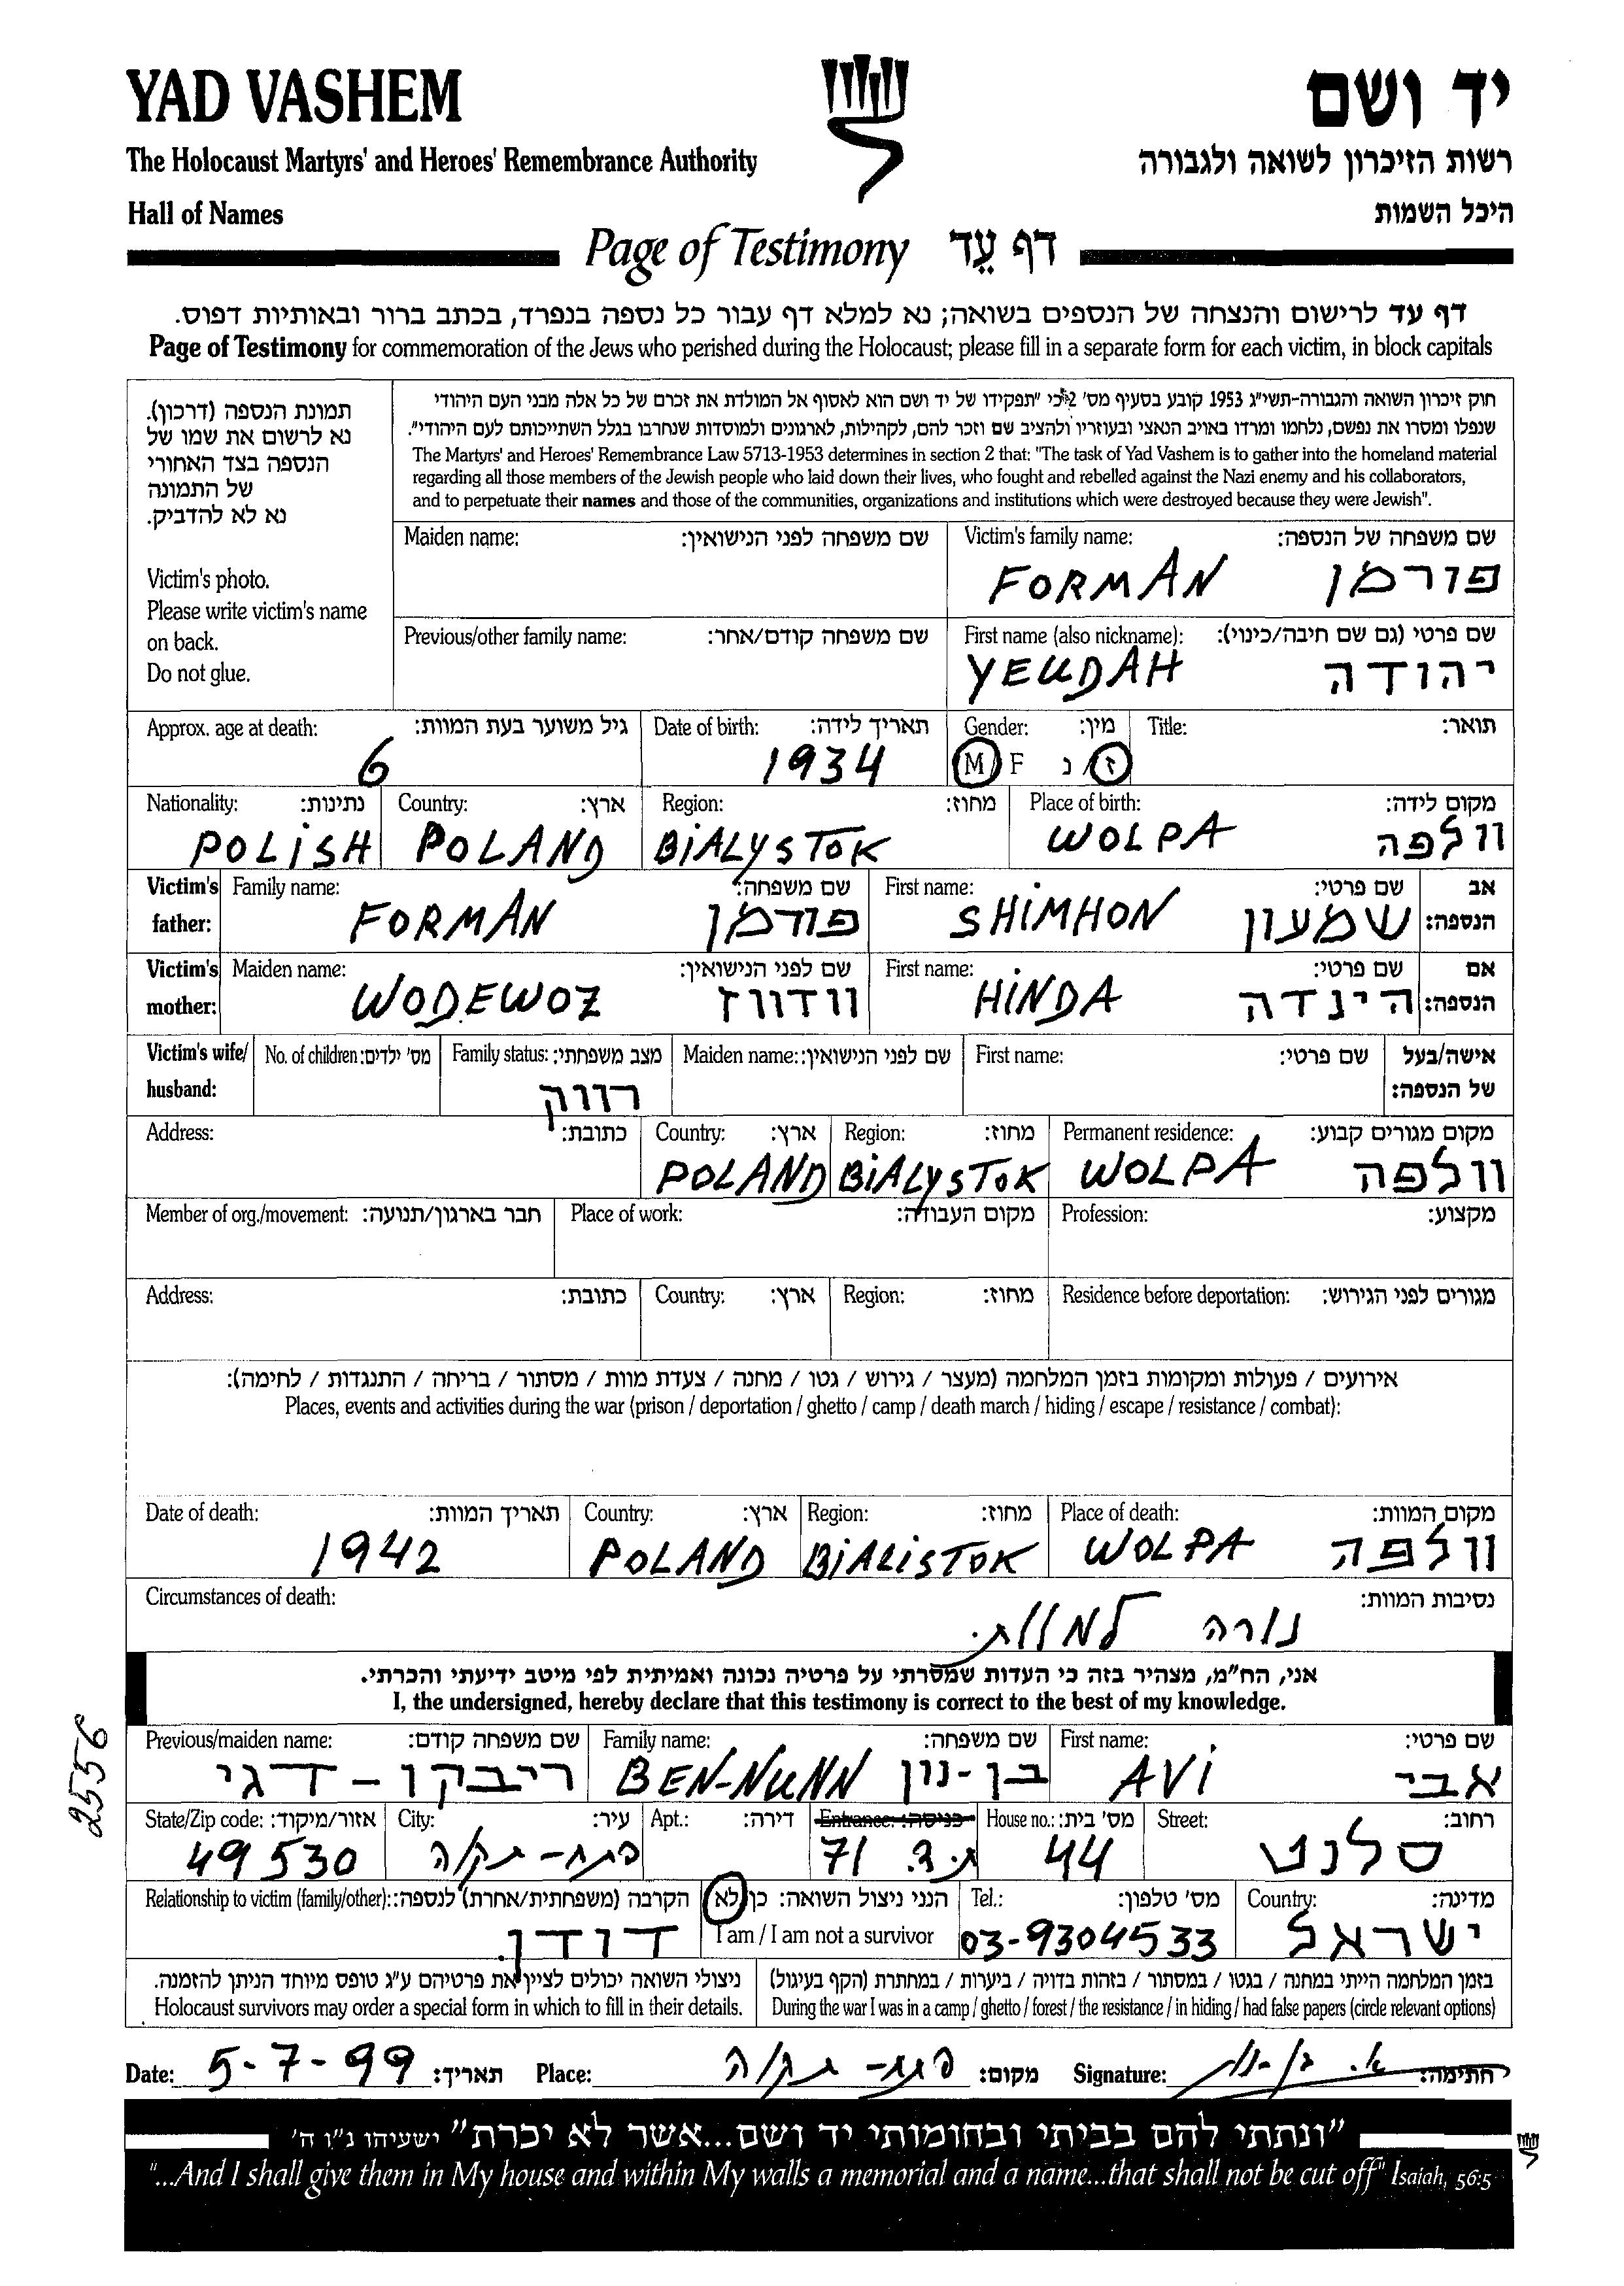 YAD VASHEM
יד ושם
The Holocaust Martyrs' and Heroes' Remembrance Authority
רשות הזיכרון לשואה ולגבורה
Hall of Names
היכל השמות
Page of Testimony דף עֵד
דף עד לרישום והנצחה של הנספים בשואה; נא למלא דף עבור כל נספה בנפרד, בכתב ברור ובאותיות דפוס.
Page of Testimony for commemoration of the Jews who perished during the Holocaust; please fill in a separate form for each victim, in block capitals
תמונת הנספה (דרכון).
נא לרשום את שמו של
הנספה בצד האחורי
של התמונה
נא לא להדביק.
Victim's photo.
Please write victim's name
on back.
Do not glue.
חוק זיכרון השואה והגבורה-תשי"ג 1953 קובע בסעיף מס' 2 כי "תפקידו של יד ושם הוא לאסוף אל המולדת את זכרם של כל אלה מבני העם היהודי
שנפלו ומסרו את נפשם, נלחמו ומרדו באויב הנאצי ובעוזריו ולהציב שם וזכר להם, לקהילות, לארגונים ולמוסדות שנחרבו בגלל השתייכותם לעם היהודי".
The Martyrs' and Heroes' Remembrance Law 5713-1953 determines in section 2 that: "The task of Yad Vashem is to gather into the homeland material
regarding all those members of the Jewish people who laid down their lives, who fought and rebelled against the Nazi enemy and his collaborators,
and to perpetuate their names and those of the communities, organizations and institutions which were destroyed because they were Jewish".
Maiden name: שם משפחה לפני הנישואין:
Victim's family name: שם משפחה של הנספה:
FORMAN פורמן
Previous/other family name: שם משפחה קודם/אחר:
First name (also nickname): שם פרטי (גם שם חיבה/כינוי):
YEUDAH יהודה
Approx. age at death: גיל משוער בעת המוות:
6
Date of birth: תאריך לידה:
1934
Gender: מין:
M / F ז / נ
Title: תואר:
Nationality: נתינות:
POLISH
Country: ארץ:
POLAND
Region: מחוז:
BIALYSTOK
Place of birth: מקום לידה:
WOLPA וולפה
Victim's father:
Family name: שם משפחה:
FORMAN פורמן
First name: שם פרטי:
SHIMHON שמעון
אב הנספה:
Victim's mother:
Maiden name: שם לפני הנישואין:
WODEWOZ וודווז
First name: שם פרטי:
HINDA הינדה
אם הנספה:
Victim's wife/ husband:
No. of children: מס' ילדים:
Family status: מצב משפחתי:
רווק
Maiden name: שם לפני הנישואין:
First name: שם פרטי:
אישה/בעל של הנספה:
Address: כתובת:
Country: ארץ:
POLAND
Region: מחוז:
BIALYSTOK
Permanent residence: מקום מגורים קבוע:
WOLPA וולפה
Member of org./movement: חבר בארגון/תנועה:
Place of work: מקום העבודה:
Profession: מקצוע:
Address: כתובת:
Country: ארץ:
Region: מחוז:
Residence before deportation: מגורים לפני הגירוש:
אירועים / פעולות ומקומות בזמן המלחמה (מעצר / גירוש / גטו / מחנה / צעדת מוות / מסתור / בריחה / התנגדות / לחימה):
Places, events and activities during the war (prison / deportation / ghetto / camp / death march / hiding / escape / resistance / combat):
Date of death: תאריך המוות:
1942
Country: ארץ:
POLAND
Region: מחוז:
BIALISTOK
Place of death: מקום המוות:
WOLPA וולפה
Circumstances of death: נסיבות המוות:
נורה למוות.
אני, הח"מ, מצהיר בזה כי העדות שמסרתי על פרטיה נכונה ואמיתית לפי מיטב ידיעתי והכרתי.
I, the undersigned, hereby declare that this testimony is correct to the best of my knowledge.
2556
Previous/maiden name: שם משפחה קודם:
ריבקו - דגי
Family name: שם משפחה:
BEN-NUNN בן-נון
First name: שם פרטי:
AVI אבי
State/Zip code: אזור/מיקוד:
49530
City: עיר:
פתח-תקוה
Apt.: דירה:
Entrance: כניסה:
ת.ד. 71
House no.: מס' בית:
44
Street: רחוב:
סלנט
Relationship to victim (family/other): הקרבה (משפחתית/אחרת) לנספה:
דודן.
הנני ניצול השואה: כן / לא
I am / I am not a survivor
Tel.: מס' טלפון:
03-9304533
Country: מדינה:
ישראל
ניצולי השואה יכולים לציין את פרטיהם ע"ג טופס מיוחד הניתן להזמנה.
Holocaust survivors may order a special form in which to fill in their details.
בזמן המלחמה הייתי במחנה / בגטו / במסתור / בזהות בדויה / ביערות / במחתרת (הקף בעיגול)
During the war I was in a camp / ghetto / forest / the resistance / in hiding / had false papers (circle relevant options)
Date: 5-7-99 תאריך: Place: פתח-תקוה מקום: Signature: א. בן-נון חתימה:
"ונתתי להם בביתי ובחומותי יד ושם...אשר לא יכרת" ישעיהו נ"ו ה'
"...And I shall give them in My house and within My walls a memorial and a name...that shall not be cut off" Isaiah, 56:5